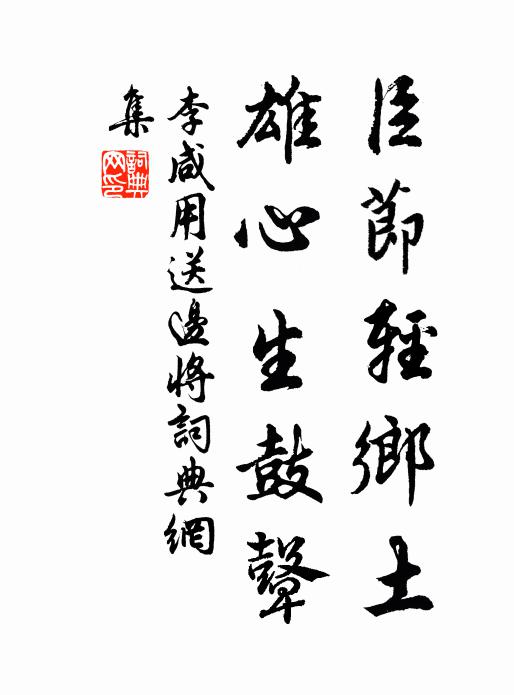 臣節輕鄉土
雄心生鼓鼙
李咸用送邊將詞典網
集
詞典
网印